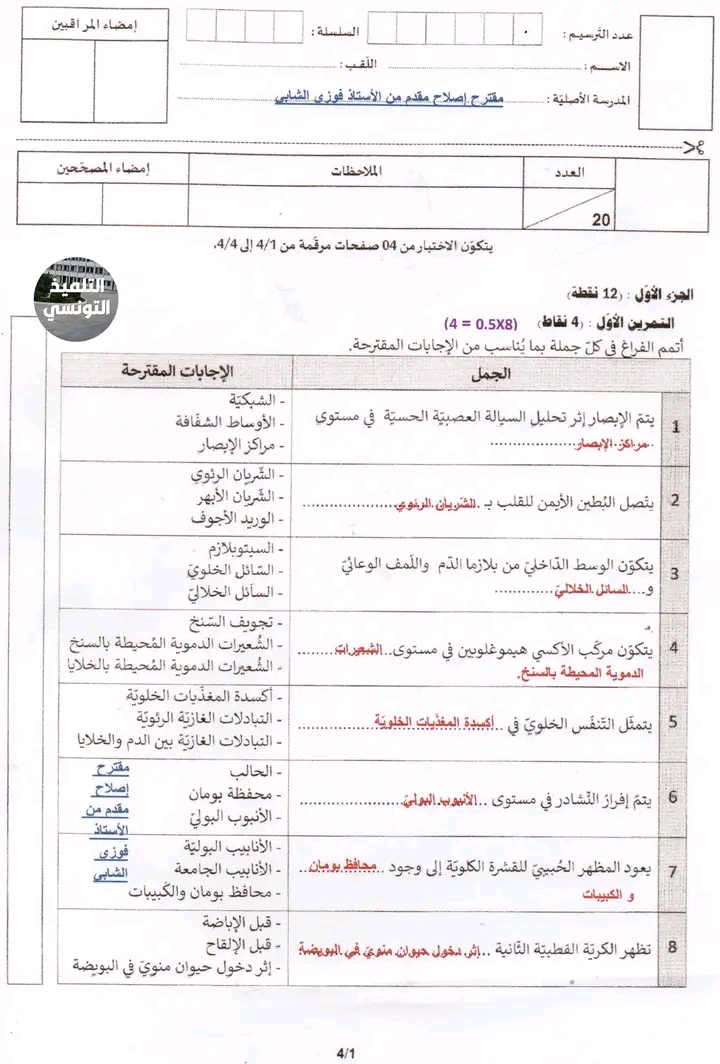 إمضاء المراقبين
عدد التّرسيم: السلسلة:
الاســم: اللّقب:
المدرسة الأصليّة: مقترح إصلاح مقدم من الأستاذ فوزي الشابي
العدد الملاحظات إمضاء المصحّحين
20
يتكوّن الاختبار من 04 صفحات مرقّمة من 4/1 إلى 4/4.
التلميذ
التونسي
الجزء الأوّل : (12 نقطة)
التمرين الأوّل : (4 نقاط) (4 = 0.5X8)
أتمم الفراغ في كلّ جملة بما يُناسب من الإجابات المقترحة.
الجمل الإجابات المقترحة
1
يتمّ الإبصار إثر تحليل السيالة العصبيّة الحسيّة في مستوى
مراكز الإبصار
- الشبكيّة
- الأوساط الشفّافة
- مراكز الإبصار
2
يتّصل البُطين الأيمن للقلب بـ ..الشريان الرئوي
- الشّريان الرئوي
- الشّريان الأبهر
- الوريد الأجوف
3
يتكوّن الوسط الدّاخليّ من بلازما الدّم واللّمف الوعائيّ
و....السائل الخلاليّ
- السيتوبلازم
- السّائل الخلويّ
- السّائل الخلاليّ
4
يتكوّن مركّب الأكسي هيموغلوبين في مستوى..الشعيرات
الدموية المحيطة بالسنخ.
- تجويف السّنخ
- الشُعيرات الدموية المُحيطة بالسنخ
- الشُعيرات الدموية المُحيطة بالخلايا
5
يتمثّل التّنفّس الخلويّ في ..أكسدة المغذّيات الخلويّة
- أكسدة المغذّيات الخلويّة
- التبادلات الغازيّة الرئويّة
- التبادلات الغازيّة بين الدم والخلايا
6
يتمّ إفراز النّشادر في مستوى ..الأنبوب البوليّ
- الحالب
- محفظة بومان
- الأنبوب البوليّ
مقترح
إصلاح
مقدم من
الأستاذ
فوزي
الشابي
7
يعود المظهر الحُبيبيّ للقشرة الكلويّة إلى وجود ..محافظ بومان
و الكبيبات
- الأنابيب البوليّة
- الأنابيب الجامعة
- محافظ بومان والكُبيبات
8
تظهر الكريّة القطبيّة الثّانية ..إثر دخول حيوان منويّ في البويضة
- قبل الإباضة
- قبل الإلقاح
- إثر دخول حيوان منويّ في البويضة
4/1